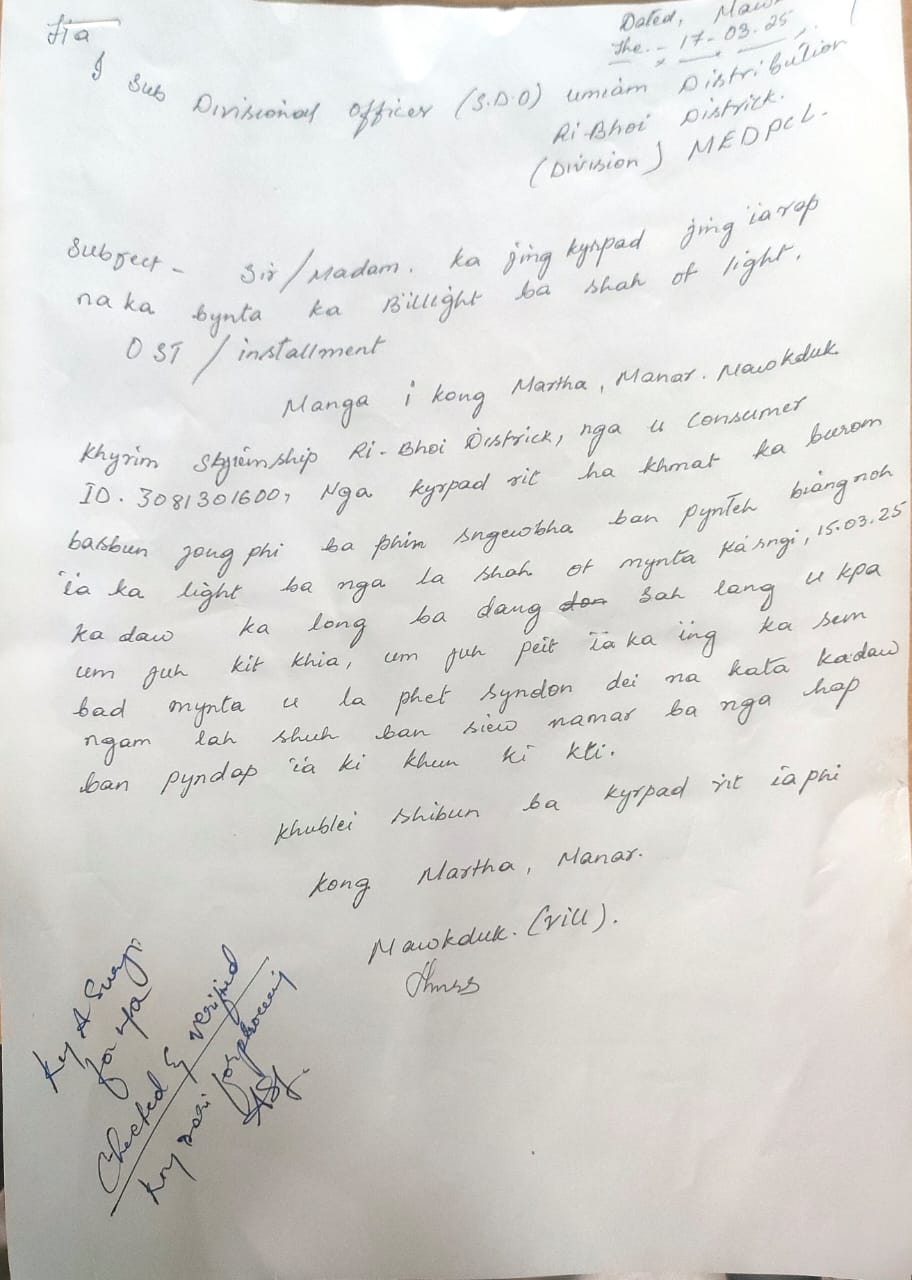 Dated, Maw
The. - 17-03.25
Sub Divisional Officer (S.D.O) umiam Distribution
Ri-Bhoi District.
(Division) MEDPCL.
Subject - Sir/Madam. ka jing kyrpad jing ïarap
na ka bynta ka Billight ba shah ot light.
OST / installment
Manga i kong Martha, Manar. Mawkduk
Khyrim Ri-Bhoi District, nga u Consumer
ID. 3081301600, Nga kyrpad rit ha khmat ka burom
basbun jong phi ba phim sngewbha ban pynteh biang noh
ïa ka light ba nga la shah ot mynta ka sngi, 15.03.25
ka daw ka long ba dang don sah lang u kpa
um juh kit khia, um juh peit ïa ka ïing ka sem
bad mynta u la phet syndon dei na kata kadaw
ngam lah shuh ban siew namar ba nga hap
ban pyndap ïa ki khun ki kti.
Khublei shibun ba kyrpad rit ïa phi
Kong Martha, Manar.
Mawkduk. (vill).
Checked & verified
for